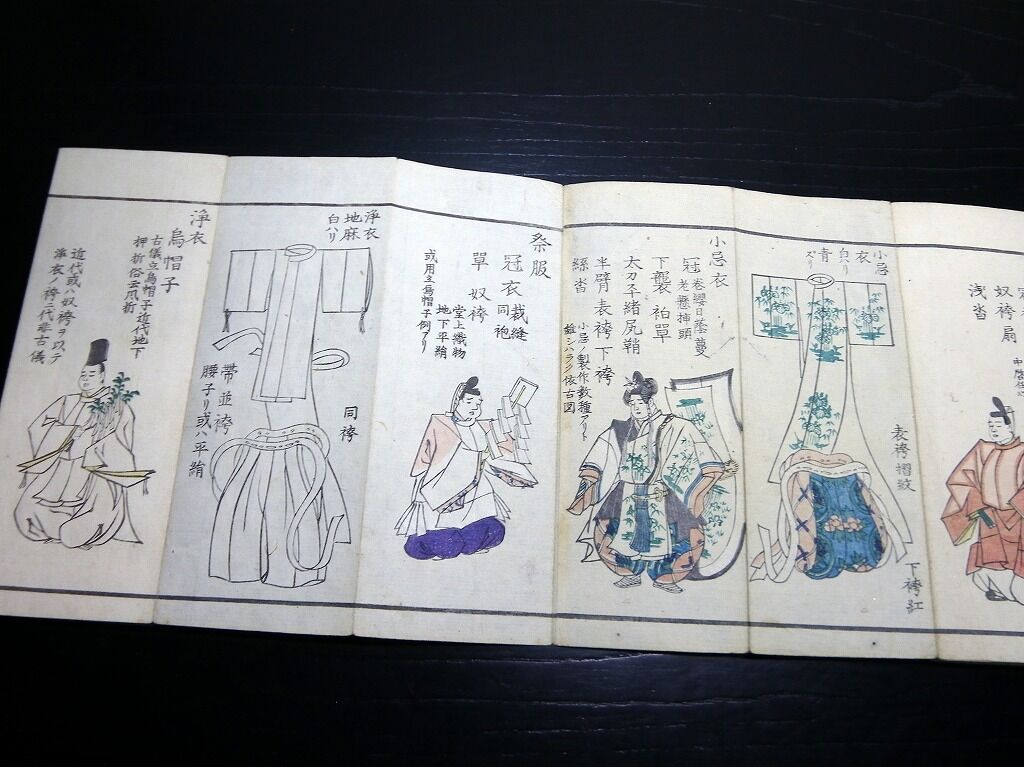 奴袴扇
浅沓
小忌
衣
白ハリ
青
ズリ
表袴摺紋
下袴紅
小忌衣
冠
巻纓日蔭蔓
老懸挿頭
下襲衵單
太刀平緒尻鞘
半臂表袴下袴
絲沓
小忌ノ製作数種アリト
雖シハラク依古図
祭服
冠衣
裁縫
同袍
單奴袴
堂上織物
地下平絹
或用立烏帽子例アリ
浄衣
地麻
白ハリ
同袴
帯並袴
腰子リ或ハ平絹
浄衣
烏帽子
古儀立烏帽子近代地下
押折俗云爪折
近代或ハ奴袴ヲ以テ
浄衣ノ袴ニ代非古儀